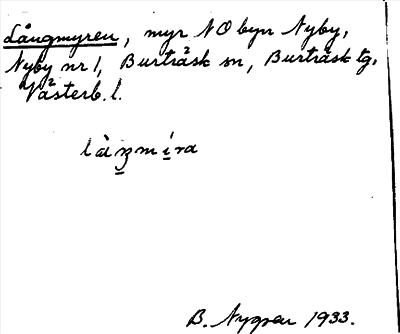 Långmyren, myr NO byn Nyby,
Nyby nr 1, Burträsk sn, Burträsk tg.
Västerb. l.
B. Nygren 1933.